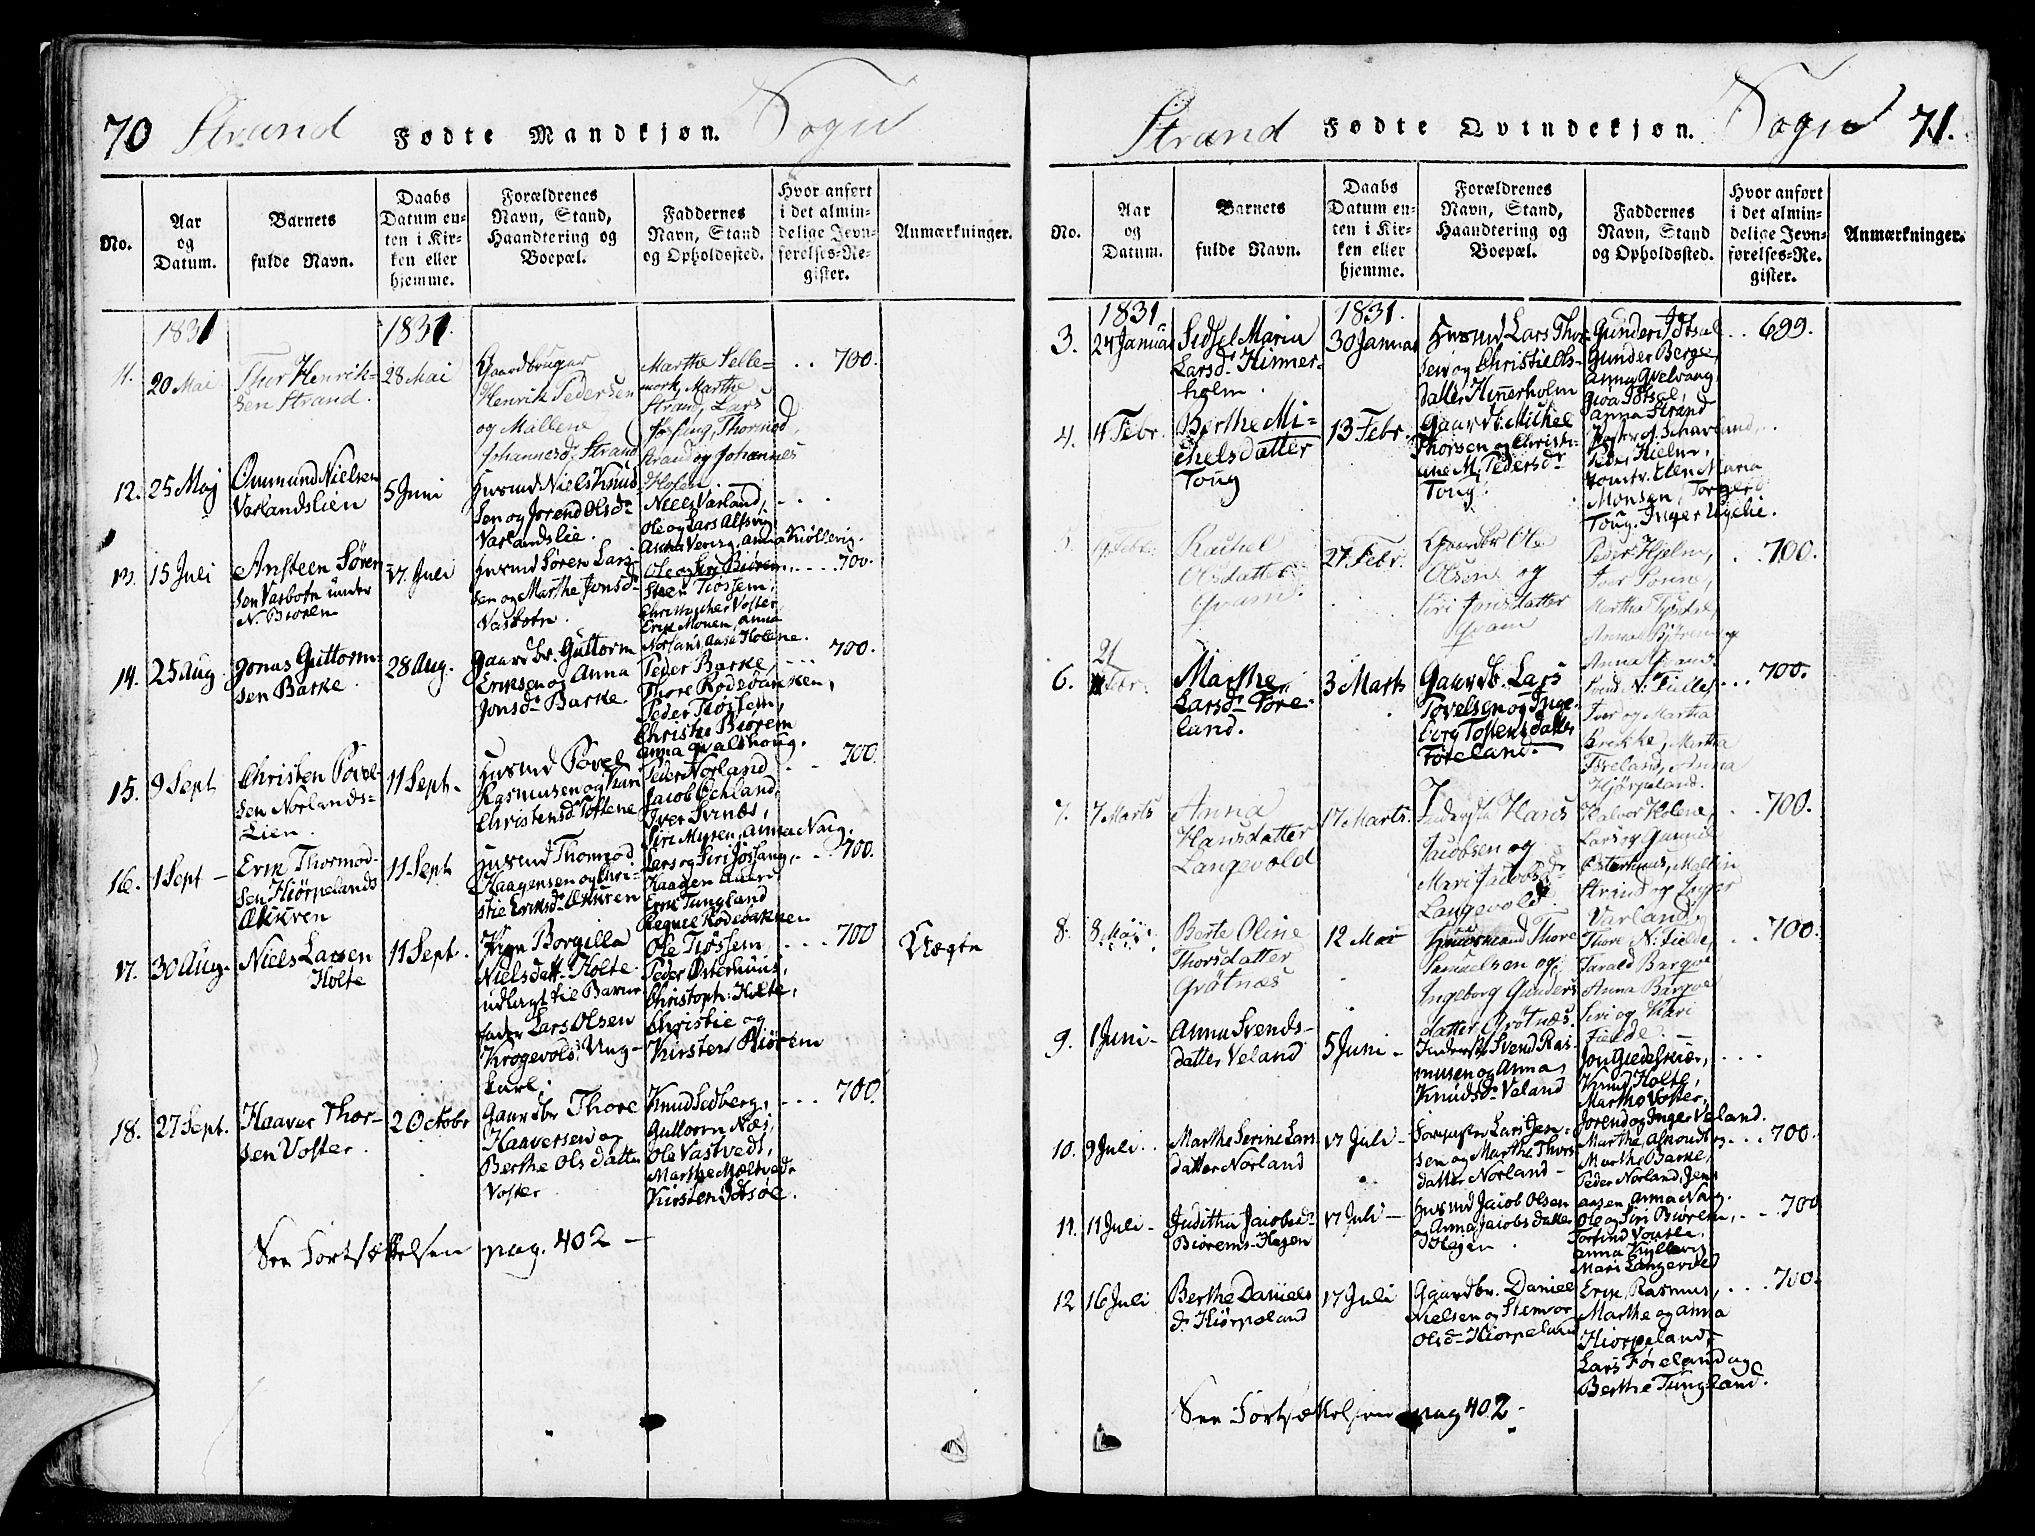 70 Strand Fødte Mandkjøn. Sogn
No.
Aar og Datum.
Barnets fulde Navn.
Daabs Datum enten i Kirken eller hjemme.
Forældrenes Navn, Stand, Haandtering og Boepæl.
Faddernes Navn, Stand og Opholdssted.
Hvor anført i det almindelige Jevnførelses-Register.
Anmærkninger.
1831
1831.
11.
20 Mai
Thor Henrik-
sen Strand.
28 Mai
Gaardbruger
Henrik Pedersen
og Mallene
Johannesd. Strand
Marthe Selle-
mork, Marthe
Strand, Lars
Jøssang, Thormod
Strand og Johannes
Holen.
. . 700.
12.
25 Maj
Ommund Nielsen
Varlandslien
5 Juni
Husmd Niels Knud-
sen og Jorend Olsd.
Varlandslie.
Niels Varland,
Ole og Lars Alsvig
Anna Kiøllevig.
13.
15 Juli
Ansteen Søren-
sen Vasbotn under
N. Biørem
17 Juli
Husmd Søren Lar-
sen og Marthe Jonsd.
Vasbotn.
Ole og Siri Biørem,
Steen Tiøstem,
Christopher Voster
Erik Monen, Anna
Norland, Aase Holene.
700.
14.
25 Aug.
Jonas Guttorm-
sen Barke
28 Aug.
Gaardbr. Guttorm
Eriksen og Anna
Jonsd. Barke.
Peder Barke,
Thore Rødebakken,
Peder Tiøstem,
Christie Biørem
Anna Qvalshoug.
700.
15.
9 Sept
Christen Povel-
sen Norlands-
Lien.
11 Sept.
Husmd Povel
Rasmusen og Kari
Christensd Toftene
Peder Norland
Jacob Ochland,
Iver Svinæs,
Siri Mysen, Anna Nag.
700.
16.
1 Sept
Erik Thormod-
sen Hiørpelands
Ækkren
11 Sept
Husmd Thormod
Haagensen og Chri-
stie Eriksd. Ækkren
Lars og Siri Jøssang,
Haagen
Erik Tungland
Regnel Rødebakken
700.
17.
30 Aug.
Niels Larsen
Holte
11 Sept.
Pigen Borgilla
Nielsdatt. Holte.
udlagt til Barne
fader Lars Olsen
Krogevold, Ung-
karl.
Ole Tiøssem
Peder Østerhuus,
Christoph: Holte,
Christie og
Kirsten Biørem
700
Uægte
18.
27 Sept.
Haaver Thor-
sen Voster.
2 Octobr
Gaardbr Thore
Haaversen og
Berthe Olsdatter
Voster
Knud Sedberg,
Guttorm Næs,
Ole Vastvedt,
Marthe Mæltvedt
Kirsten Idsøe.
700.
See Fortsættelsen pag. 402
Strand Fødte Qvindekjøn. Sogn 71.
No.
Aar og Datum.
Barnets fulde Navn.
Daabs Datum enten i Kirken eller hjemme.
Forældrenes Navn, Stand, Haandtering og Boepæl.
Faddernes Navn, Stand og Opholdssted.
Hvor anført i det almindelige Jevnførelses-Register.
Anmærkninger.
1831
1831.
3.
24 Januar
Sidsel Maria
Larsd. Himmer-
holm.
30 Januar
Husmd Lars Thor-
sen og Christie Ols-
datter Himerholm
Gunder Idsal
Gunder Berge
Anna Qvelvang
Gioa Idsal,
Anna Strand
. . 699.
4.
4 Febr.
Berthe Mi-
chelsdatter
Toug
13 Febr.
Gaardb. Michel
Thorsen og Christi-
ine M. Pedersd.
Toug.
Peder Hielm,
Jomfr. Elen Maria
Monsen, Torger
Toug. Inger
5.
Febr.
Rachel
Olsdatter
Qvam.
27 Febr.
Gaardbr Ole
Olsøne og
Siri Jonsdatter
Qvam
Peder Hjelm,
Iver Sønne,
. . 700.
6.
21
Febr.
Marthe
Larsd. Føre-
land.
3 Marts
Gaardb. Lars
Tovelsen og Inge-
borg Tostensdatter
Føreland.
Iver og Martha
Brekke, Martha
Føreland, Anna
Hjørpeland.
. . . 700.
7.
7 Marts
Anna
Hansdatter
Langevold
17 Marts.
Inderste Hans
Jacobsen og
Mari Jacobsd.
Langevold
Halvor Holene,
Lars og Gunnil
Østerhuus, Malkin
Strand og Inger
Varland.
. . 700.
8.
8 Mai
Berte Oline
Thorsdatter
Grøtnæs
12 Mai
Huusmand Thore
Samuelsen og
Ingeborg Gunders
datter Grøtnæs.
Thore N: Fielde,
Tarald Bargoe
Anna Bargoe
Siri og Kari
Fielde.
. . 700.
9.
1 Juni
Anna Svends-
datter Veland
5 Juni
Inderste Svend Ras-
musen og Anna
Knudsd. Veland
Jon Giedeskiær,
Knud Holte,
Marthe Voster,
Jorend og Inger Veland.
10.
9 Juli
Marthe Serine Lars
datter Norland
17 Juli
Lars Jen-
sen og Marthe Thors
datter Norland
Marthe Barke,
Peder Norland, Jens
Aasen, Anna Nag.
. . 700.
11.
11 Juli
Juditha Jacobsd.
Biørems-Hagen
17 Juli
Husmd Jacob Olsen
og Anna Jacobsdatter
Hagen
Ole og Siri Biørem,
Anna Kyllevig
Mari Langevold
. . 700
12
16 Juli
Berthe Daniels
d. Hiørpeland
17 Juli
Gaardbr. Daniel
Nielsen og Stenvor
Olsd. Hiorpeland
Erik, Rasmus,
Marthe og Anna
Hiorpeland,
Lars Føreland og
Berthe Tungland.
. . . 700.
See Fortsættelsen pag 402